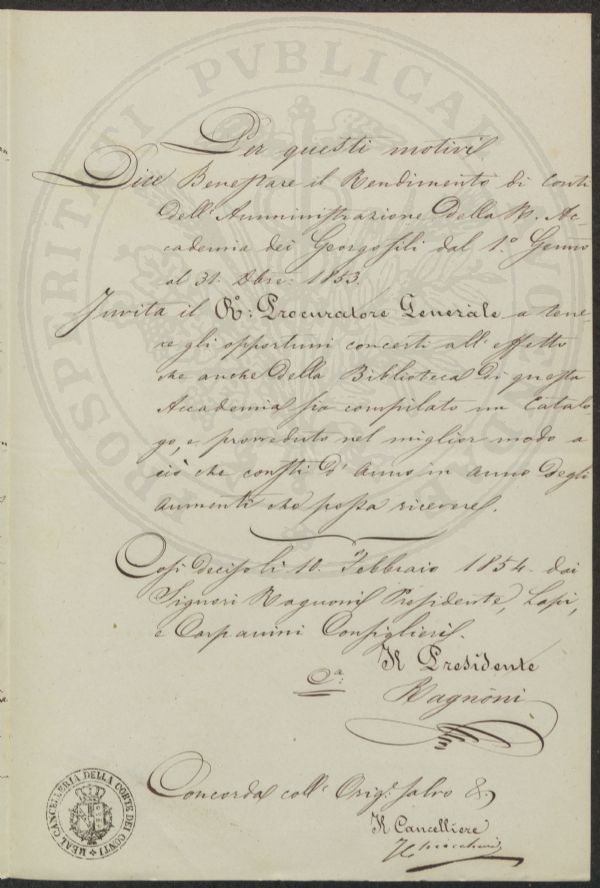 Per questi motivi
Dice Benestare il Rendimento di Conti
dell'Amministrazione della R. Ac-
cademia dei Georgofili dal 1.° Genno
al 31. Dbre. 1853.
Invita il R.° Procuratore Generale a tene-
re gli opportuni concerti all'effetto
che anche della Biblioteca di questa
Accademia sia compilato un Catalo-
go, e provveduto nel miglior modo a
ciò che consti d'anno in anno degli
aumenti che possa ricevere.
Così deciso li 10. Febbraio 1854. dai
Signori Ragnoni Presidente, Lapi,
e Carpanini Consiglieri.
Il Presidente
Ragnoni
Concorda coll' Orig.e salvo &.
Il Cancelliere
REAL CANCELLERIA DELLA CORTE DEI CONTI